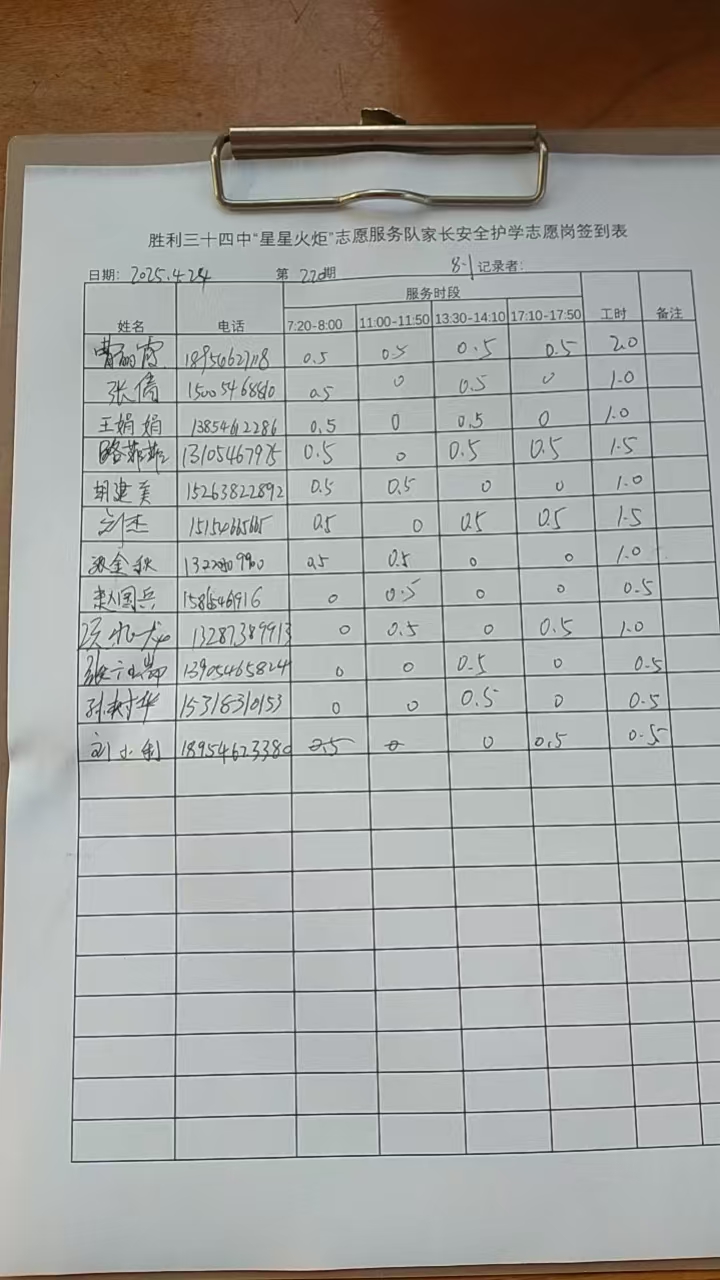 胜利三十四中“星星火炬”志愿服务队家长安全护学志愿岗签到表
日期: 2025.4.24 第 220期 8-1 记录者:
服务时段
姓名 电话 7:20-8:00 11:00-11:50 13:30-14:10 17:10-17:50 工时 备注
曹丽霞 0.5 0.5 0.5 0.5 2.0
张倩 0.5 0 0.5 0 1.0
王娟娟 13854612286 0.5 0 0.5 0 1.0
路菲菲 13105467975 0.5 0 0.5 0.5 1.5
胡建美 15263822892 0.5 0.5 0 0 1.0
刘杰 0.5 0 0.5 0.5 1.5
金秋 0.5 0.5 0 0 1.0
赵国兵 0 0.5 0 0 0.5
13287389913 0 0.5 0 0.5 1.0
13905465824 0 0 0.5 0 0.5
孙树华 15318310153 0 0 0.5 0 0.5
刘小利 18954623380 0.5 0 0 0.5 0.5